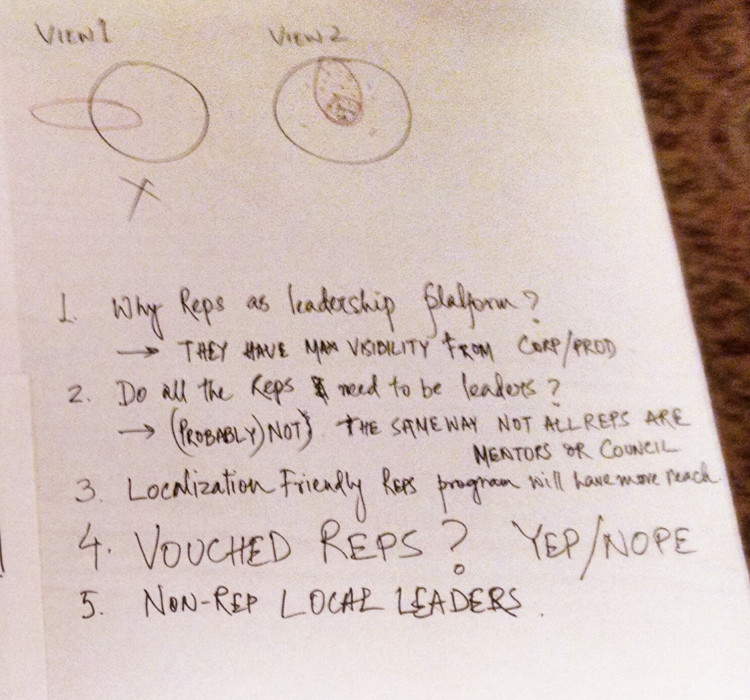 VIEW 1 VIEW 2
X
1. Why Reps as leadership platform?
→ THEY HAVE MAX VISIBILITY FROM CORP/PROD
2. Do all the Reps need to be leaders?
→ (PROBABLY) NOT} THE SAME WAY NOT ALL REPS ARE
MENTORS OR COUNCIL
3. Localization Friendly Reps program will have more reach.
4. VOUCHED REPS? YEP/NOPE
5. NON-REP LOCAL LEADERS.